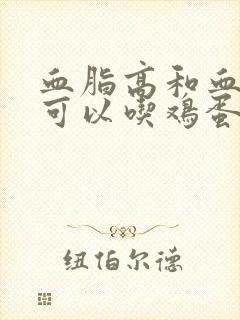 血脂高和血
可以喫鸡蛋
纽伯尔德